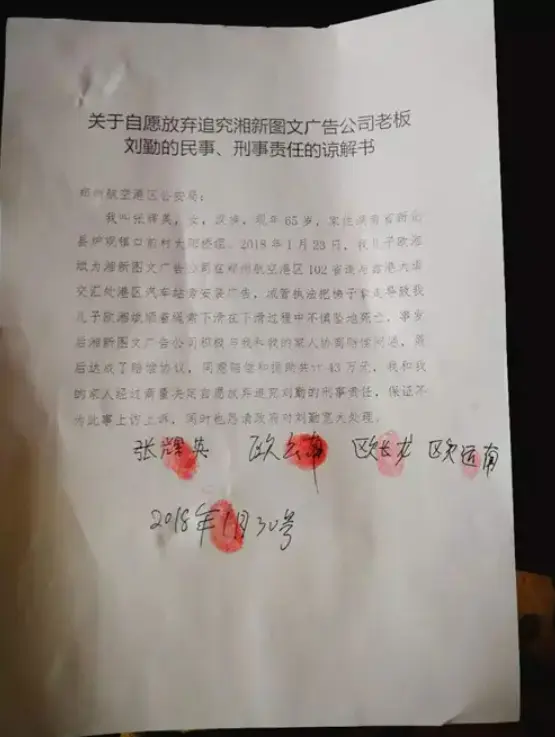 关于自愿放弃追究湘新图文广告公司老板
刘勤的民事、刑事责任的谅解书
郑州航空港区公安局：
我叫张辉英，女，汉族，现年 65 岁，家住湖南省新化
县炉观镇口前村太阳桥组。2018 年 1 月 23 日，我儿子欧湘
斌为湘新图文广告公司在郑州航空港区 102 省道与雷港大道
交汇处港区汽车站旁安装广告，城管执法把梯子拿走导致我
儿子欧湘斌顺着绳索下滑在下滑过程中不慎坠地死亡，事发
后湘新图文广告公司积极与我和我的家人协商赔偿问题，最
后达成了赔偿协议，同意赔偿和捐助共计 43 万元，我和我
的家人经过商量决定自愿放弃追究刘勤的刑事责任，保证不
为此事上访上诉，同时也恳请政府对刘勤宽大处理。
张辉英 欧 南 欧长龙 欧运南
2018年1月30号